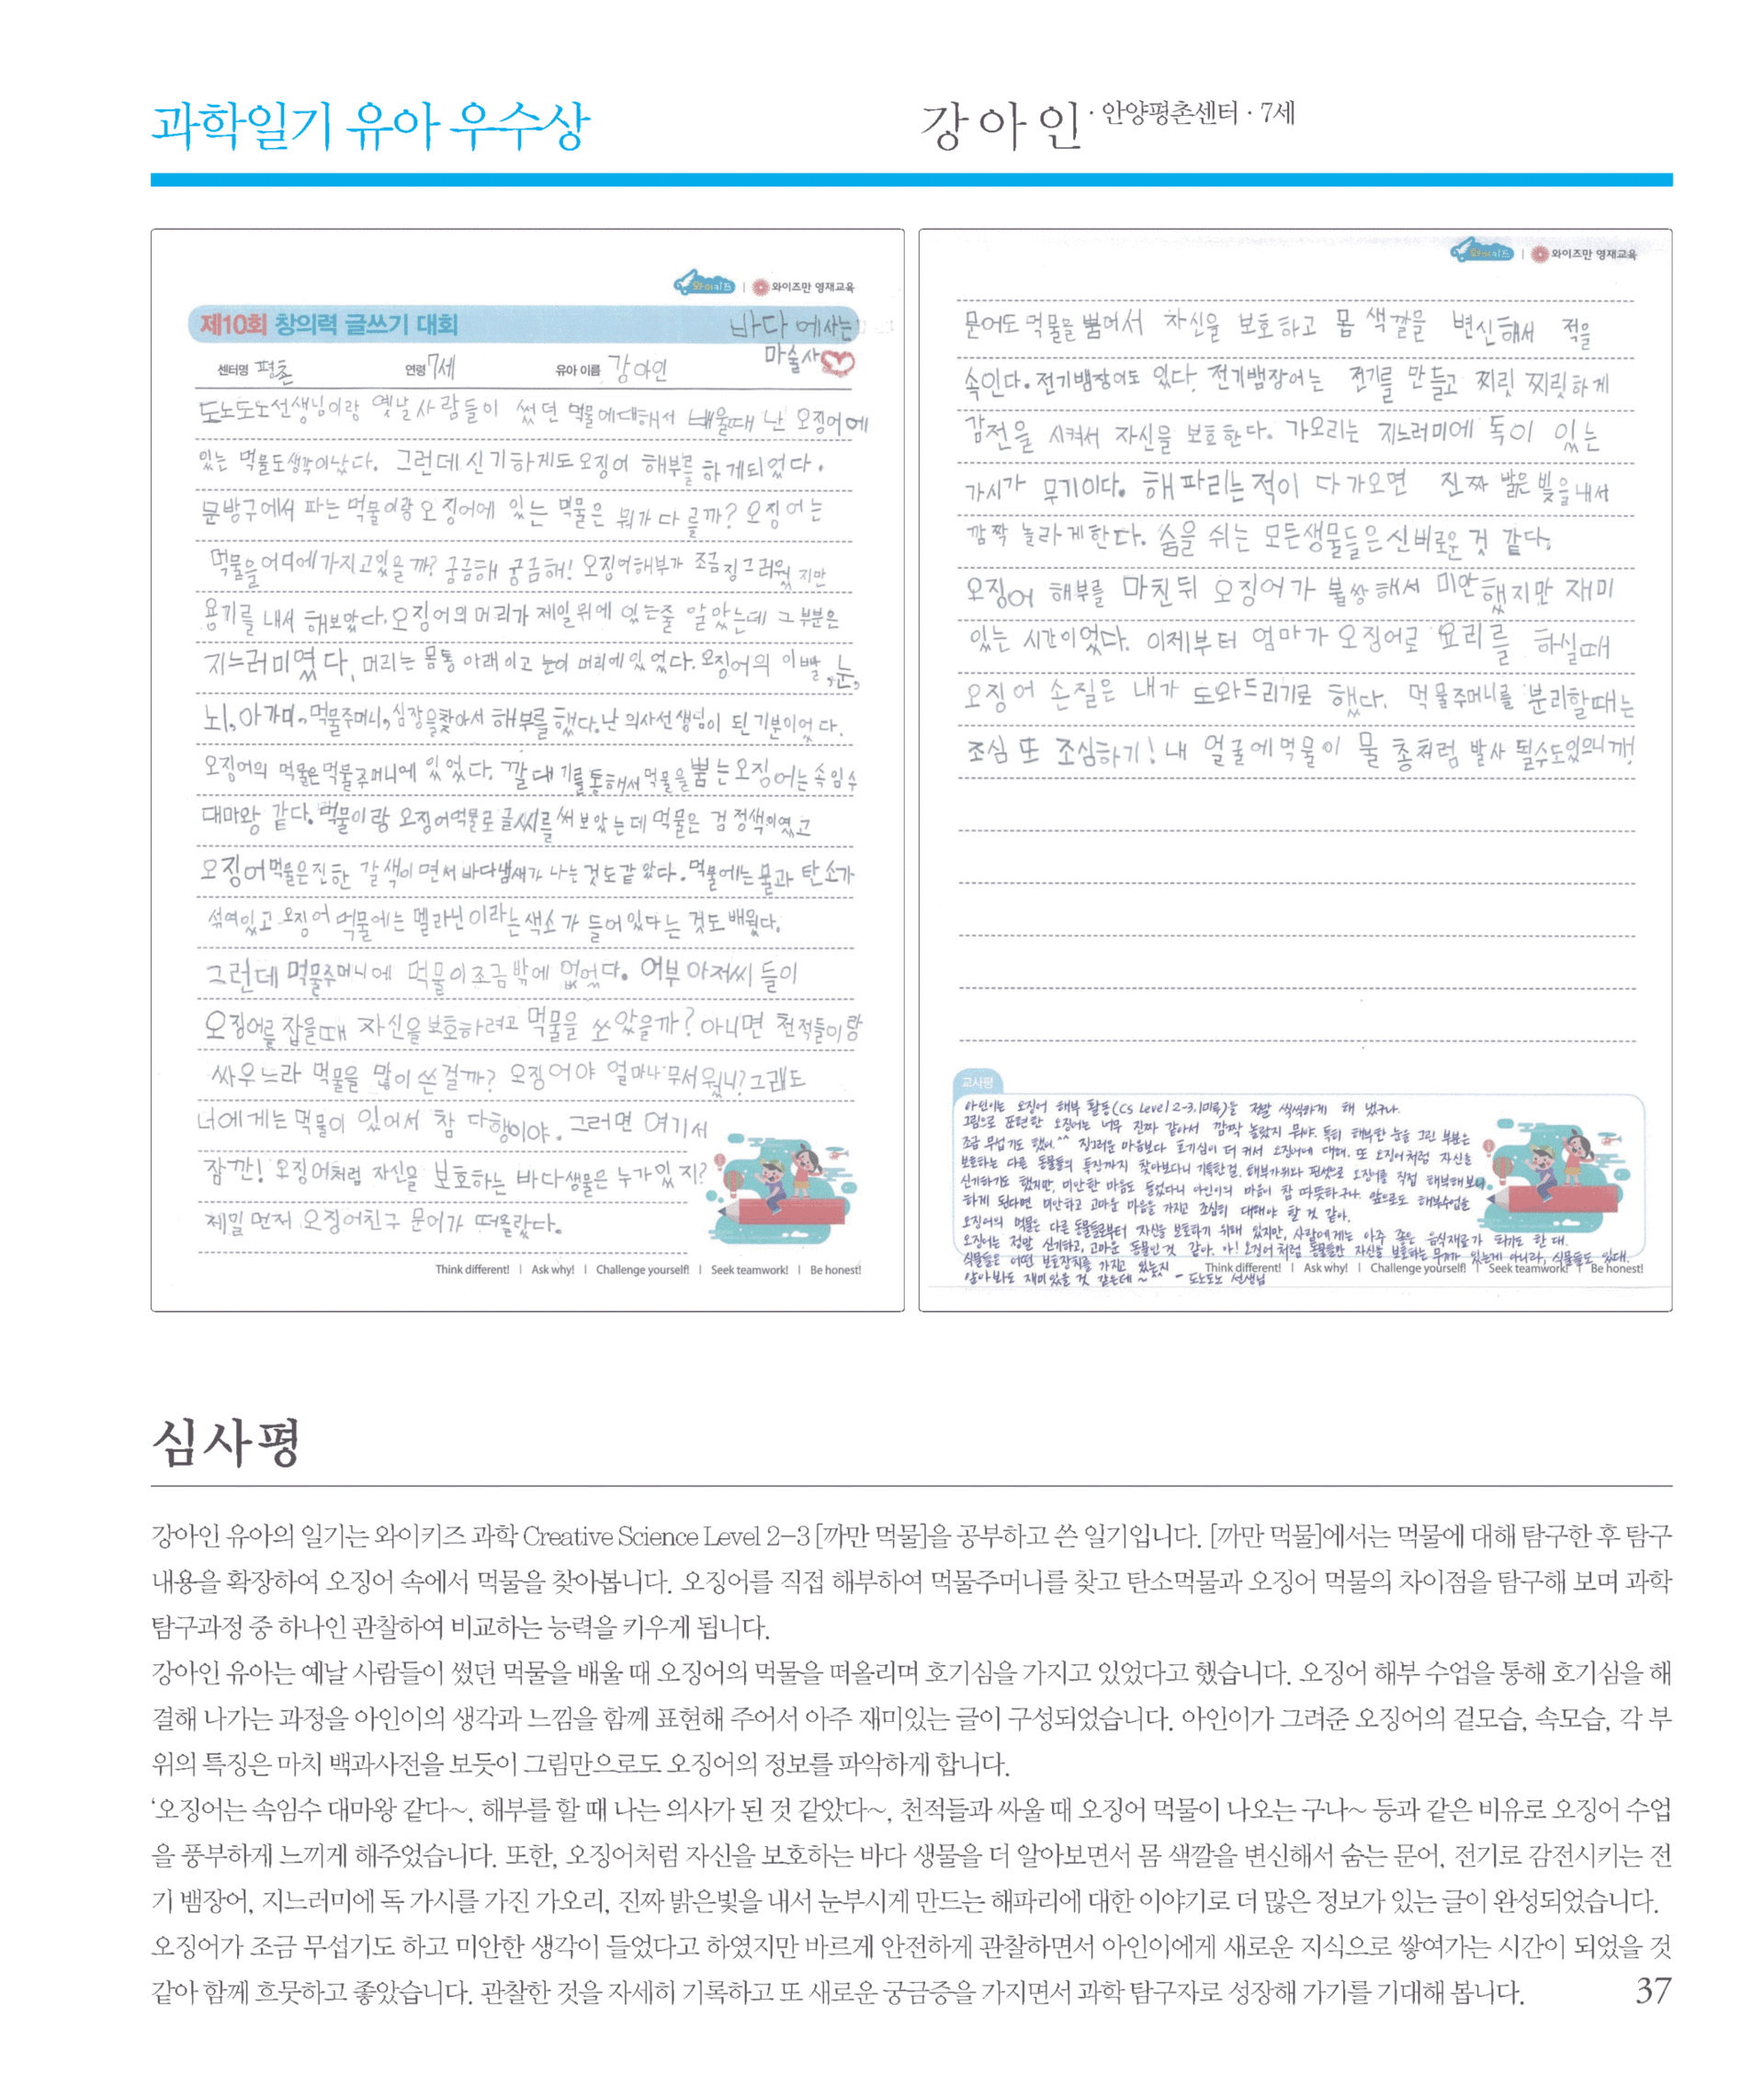 과학일기 유아 우수상
강아인 · 안양평촌센터 · 7세
와이키즈 | 와이즈만 영재교육
제10회 창의력 글쓰기 대회
바다에사는
마술사
센터명 평촌 연령 7세 유아 이름 강아인
도노도노선생님이랑 옛날사람들이 썼던 먹물에대해서 배울때 난 오징어에
있는 먹물도생각이났다. 그런데 신기하게도 오징어 해부를 하게되었다.
문방구에서 파는 먹물이랑 오징어에 있는 먹물은 뭐가 다를까? 오징어는
먹물을어디에가지고있을까? 궁금해 궁금해! 오징어해부가 조금징그러웠지만
용기를 내서 해보았다. 오징어의 머리가 제일위에 있는줄 알았는데 그 부분은
지느러미였다, 머리는 몸통 아래이고 눈이 머리에있었다. 오징어의 이빨,눈,
뇌, 아가미, 먹물주머니, 심장을찾아서 해부를 했다. 난 의사선생님이 된 기분이었다.
오징어의 먹물은먹물주머니에 있었다. 깔대기를통해서먹물을 뿜는오징어는속임수
대마왕 같다. 먹물이랑 오징어먹물로글씨를써보았는데 먹물은 검정색이였고
오징어먹물은진한 갈색이면서바다냄새가 나는 것도같았다. 먹물에는 물과 탄소가
섞여있고 오징어 먹물에는 멜라닌이라는색소가 들어있다는 것도 배웠다.
그런데 먹물주머니에 먹물이조금밖에 없었다. 어부 아저씨 들이
오징어를 잡을때 자신을보호하려고 먹물을 쏘았을까? 아니면 천적들이랑
싸우느라 먹물을 많이 쓴걸까? 오징어야 얼마나무서웠니? 그래도
너에게는먹물이 있어서 참 다행이야. 그러면 여기서
잠깐! 오징어처럼 자신을 보호하는 바다생물은 누가있지?
제일먼저 오징어친구 문어가 떠올랐다.
Think different! | Ask why! | Challenge yourself! | Seek teamwork! | Be honest!
와이키즈 | 와이즈만 영재교육
문어도 먹물을 뿜어서 자신을 보호하고 몸 색깔을 변신해서 적을
속인다. 전기뱀장어도 있다. 전기뱀장어는 전기를 만들고 찌릿 찌릿하게
감전을 시켜서 자신을 보호한다. 가오리는 지느러미에 독이 있는
가시가 무기이다. 해파리는적이 다가오면 진짜 밝은빛을내서
깜짝 놀라게한다. 숨을 쉬는 모든생물들은신비로운 것 같다.
오징어 해부를 마친뒤 오징어가 불쌍해서 미안했지만 재미
있는 시간이었다. 이제부터 엄마가 오징어로 요리를 하실때
오징어 손질은 내가 도와드리기로 했다. 먹물주머니를 분리할때는
조심 또 조심하기! 내 얼굴에먹물이 물총처럼 발사 될수도있으니까!
교사평
아인이는 오징어 해부 활동(CS Level 2-3. 1미륙)을 정말 씩씩하게 해 냈구나.
그림으로 표현한 오징어는 너무 진짜 같아서 깜짝 놀랐지 뭐야. 특히 해부한 눈을 그린 부분은
조금 무섭기도 했어.^^ 징그러운 마음보다 호기심이 더 커서 오징어에 대해, 또 오징어처럼 자신을
보호하는 다른 동물들의 특징까지 찾아보다니 기특한걸. 해부가위와 핀셋으로 오징어를 직접 해부해보니
신기하기도 했지만, 미안한 마음도 들었다니 아인이의 마음이 참 따뜻하구나. 앞으로도 해부수업을
하게 된다면 미안하고 고마운 마음을 가지고 조심히 대해야 할 것 같아.
오징어의 먹물은 다른 동물들로부터 자신을 보호하기 위해 있지만, 사람에게는 아주 좋은 음식재료가 되기도 한 대.
오징어는 정말 신기하고, 고마운 동물인것 같아. 아! 오징어처럼 동물들만 자신을 보호하는 무기가 있는게 아니라, 식물들도 있대.
식물들은 어떤 보호장치를 가지고 있는지
알아봐도 재미있을 것 같은데~^^ - 도노도노 선생님
Think different! | Ask why! | Challenge yourself! | Seek teamwork! | Be honest!
심사평
강아인 유아의 일기는 와이키즈 과학 Creative Science Level 2-3 [까만 먹물]을 공부하고 쓴 일기입니다. [까만 먹물]에서는 먹물에 대해 탐구한 후 탐구
내용을 확장하여 오징어 속에서 먹물을 찾아봅니다. 오징어를 직접 해부하여 먹물주머니를 찾고 탄소먹물과 오징어 먹물의 차이점을 탐구해 보며 과학
탐구과정 중 하나인 관찰하여 비교하는 능력을 키우게 됩니다.
강아인 유아는 예날 사람들이 썼던 먹물을 배울 때 오징어의 먹물을 떠올리며 호기심을 가지고 있었다고 했습니다. 오징어 해부 수업을 통해 호기심을 해
결해 나가는 과정을 아인이의 생각과 느낌을 함께 표현해 주어서 아주 재미있는 글이 구성되었습니다. 아인이가 그려준 오징어의 겉모습, 속모습, 각 부
위의 특징은 마치 백과사전을 보듯이 그림만으로도 오징어의 정보를 파악하게 합니다.
‘오징어는 속임수 대마왕 같다~, 해부를 할 때 나는 의사가 된 것 같았다~, 천적들과 싸울 때 오징어 먹물이 나오는 구나~ 등과 같은 비유로 오징어 수업
을 풍부하게 느끼게 해주었습니다. 또한, 오징어처럼 자신을 보호하는 바다 생물을 더 알아보면서 몸 색깔을 변신해서 숨는 문어, 전기로 감전시키는 전
기 뱀장어, 지느러미에 독 가시를 가진 가오리, 진짜 밝은빛을 내서 눈부시게 만드는 해파리에 대한 이야기로 더 많은 정보가 있는 글이 완성되었습니다.
오징어가 조금 무섭기도 하고 미안한 생각이 들었다고 하였지만 바르게 안전하게 관찰하면서 아인이에게 새로운 지식으로 쌓여가는 시간이 되었을 것
같아 함께 흐뭇하고 좋았습니다. 관찰한 것을 자세히 기록하고 또 새로운 궁금증을 가지면서 과학 탐구자로 성장해 가기를 기대해 봅니다.
37